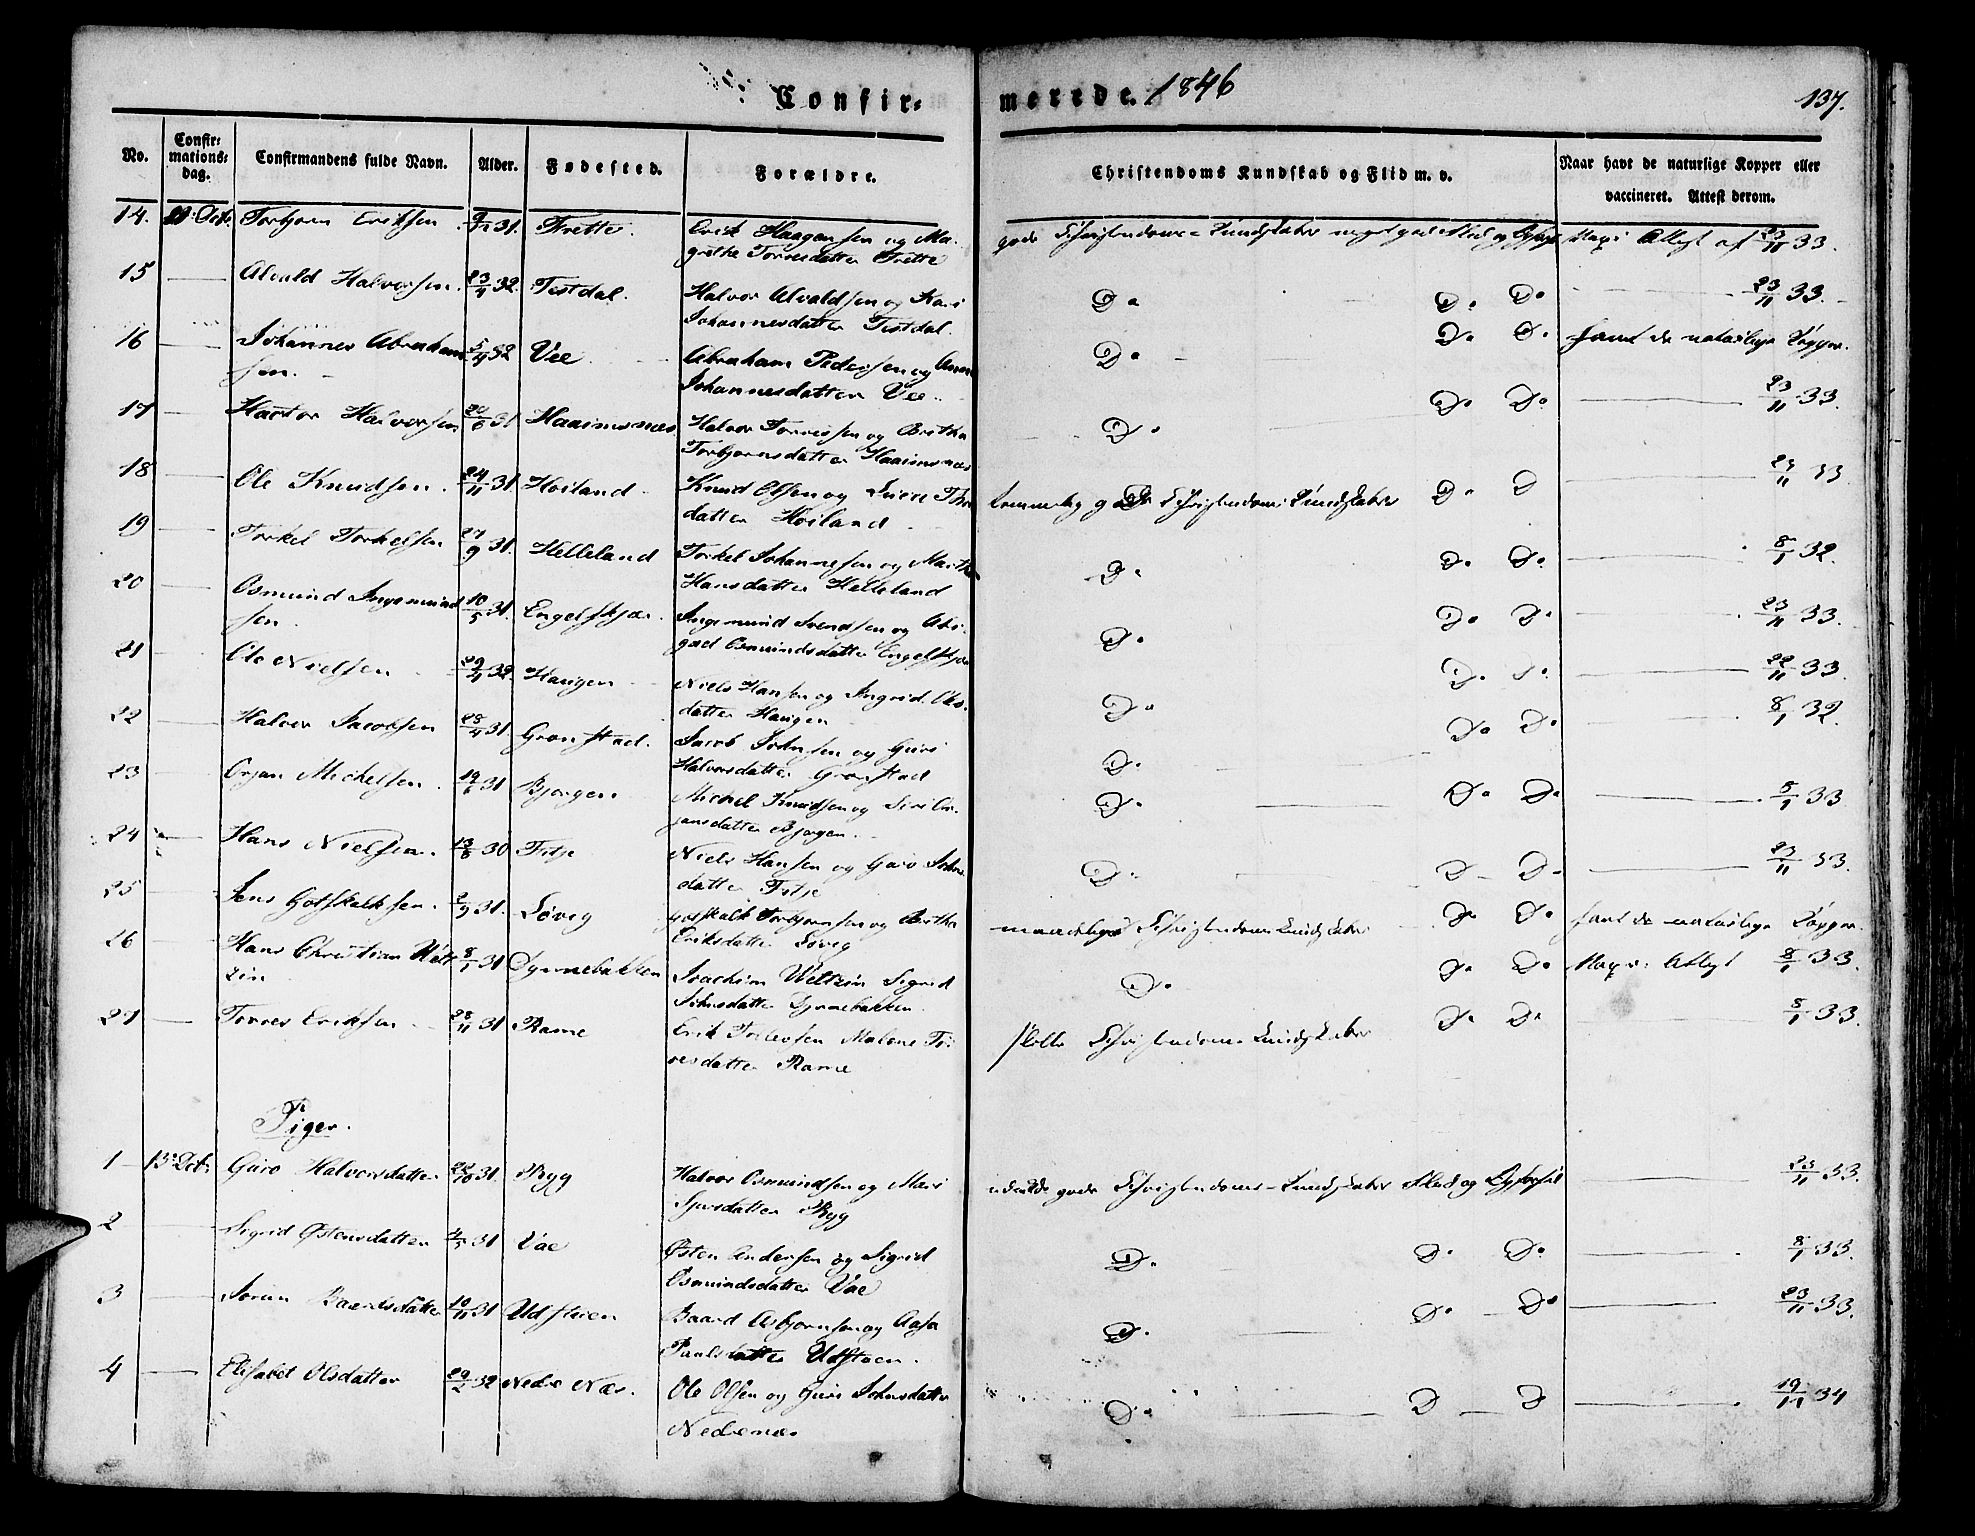 Confirmerede. 1846
137.
No. Confirmations-dag. Confirmandens fulde Navn. Alder. Fødested. Forældre. Christendoms Kundskab og Flid m. v. Naar havt de naturlige Kopper eller vaccineret. Attest derom.
14. Oct: Torbjørn Eriksen 31. Frette. Erik Haagensen og Ma-
grethe Torresdatter Frette
gode Christendoms-Kundskaber meget god Flid og Opførsel Attest af 23/11 33.
15 Alvald Halvorsen. 23/4 32. Testdal. Halvor Alvaldsen og Kari
Johannesdatter Testdal.
Do Do Do 23/11 33.
16 Johannes Abraham-
sen. 5/4 32 Vee Abraham Pedersen og Anna
Johannesdatter Vee.
Do Do Do havt de naturlige Kopper.
17 Halvorsen 31 Haaimsnæs Halvor Torressen og Brithe
Torbjørnsdatter Haaimsnæs
Do Do Do 23/11 33.
18 Ole Knudsen. 24/11 31. Høiland Knud Olsen og
datter Høiland
temmelig gode Christendoms Kundskaber Do D 23/11 33
19 Torkel Torkelsen 27/9 31. Helleland Torkel Johannesen og Marthe
Hansdatter Helleland
Do Do Do 8/1 32.
20 Osmund Ingemund-
sen. 10/5 31. Engelskjær. Ingemund Svendsen og Abi-
gael Osmundsdatter Engelskjær
Do Do Do 23/11 33.
21 Ole Nielsen 29/4 32. Haugen Niels Hansen og Ingrid Ols-
datter Haugen
Do Do Do 22/11 33.
22 Halvor Jacobsen 28/4 31 Grønstad. Jacob Johnsen og Guri
Halvorsdatter Grønstad
Do Do Do 8/1 32.
23 Ørjan Michelsen. 31 Bjørgen Michel Knudsen og Siri Ør-
jansdatter Bjørgen.
Do Do Do 8/1 33.
24 Hans Nielsen. 13/8 30 Fitje Niels Hansen og Guro Johns-
datter Fitje
Do D Do 23/11 33.
25 Jens Gotskalksen. 2/9 31. Løvig Gotskalk Torbjørnsen og Brithe
Eriksdatter Løvig
maadelige Christendoms Kundskaber Do Do havt de naturlige Kopper.
26 Hans Christian Welt-
zin 8/1 31 Dynnebakken Joachim Weltzin Sigrid
Johnsdatter Dynnebakken.
Do Do Do Attest 8/1 33.
27 Torres Eriksen 28/11 31 Rame Erik Torresen Malene Tor-
resdatter Rame
slette Christendoms Kundskaber Do Do 8/1 33.
Piger.
1 13: Oct: Guro Halvorsdatter 22/10 31. Ryg Halvor Osmundsen og Mari
Sjursdatter Ryg
gode Christendoms-Kundskaber Flid og Opførsel 23/11 33.
2 Sigrid Østensdatter 4/5 31 Vae Østen Andersen og Sigrid
Osmundsdatter Vae
Do Do Do 8/1 33.
3 Søren Baardsdatter 10/11 31 Udstøen Baard Asbjørnsen og Aasa
Paulsdatter Udstøen.
Do Do Do 23/11 33.
4 Elisabet Olsdatter 29/2 32 Nedre Næs. Ole Olsen og Guri Johnsdatter
Nedrenæs
Do D D 19/11 34